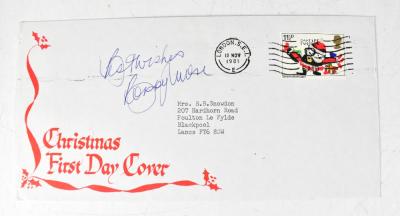 LONDON, S.E.1.
18 NOV
1981
E
11½P
Best Wishes
Mrs. S.B.Snowdon
207 Hardhorn Road
Poulton Le Fylde
Blackpool
Lancs FY6 8DW
Christmas
First Day Cover